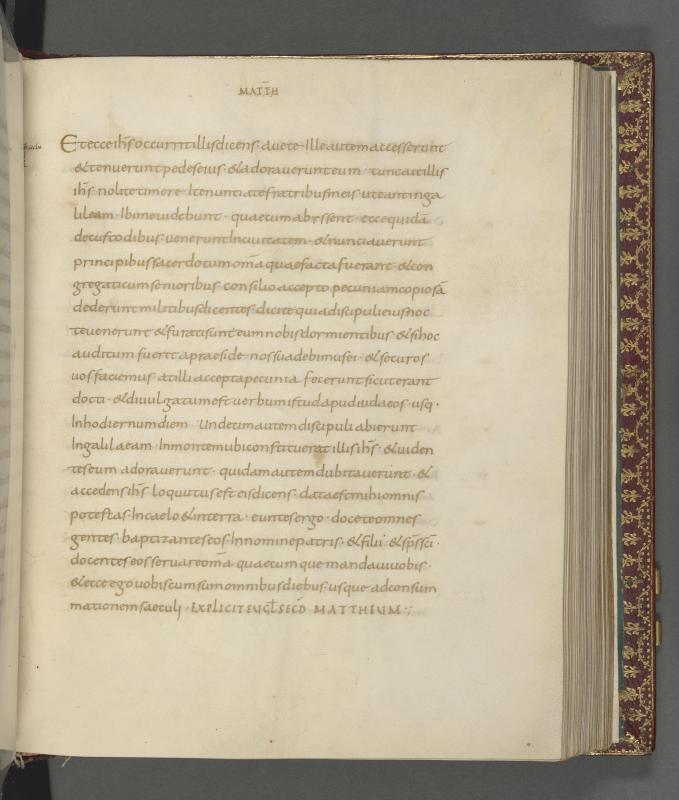 MATTH
Et ecce ihs occurrit illis dicens · avete · Ille autem accesserunt
& tenuerunt pedes eius · & adoraverunt eum · tunc ait illis
ihs nolite timere · Ite nuntiate fratribus meis ut eant in ga
lileam · Ibi me videbunt · quae cum abyssent · ecce quidā
de custodibus venerunt In civitatem · & nunciaverunt
principibus sacerdotum omā quae facta fuerant · & con
gregati cum senioribus · consilio accepto pecuniam copiosā
dederunt militibus dicentes · dicite quia discipuli eius noc
te venerunt & furati sunt eum nobis dormientibus · & si hoc
auditum fuerit a praeside · nos suadebimus ei · & securos
vos faciemus · at illi accepta pecunia fecerunt sicut erant
docti · & divulgatum est verbum istud apud iudaeos · usq ·
In hodiernum diem · Undecim autem discipuli abierunt
In galilaeam · In montem ubi constituerat illis ihs · & viden
tes eum adoraverunt · quidam autem dubitaverunt · &
accedens ihs loquutus est eis dicens · data est mihi omnis
potestas · In caelo & in terra · euntes ergo · docete omnes
gentes · baptizantes eos · In nomine patris · & filii · & sps sci ·
docentes eos servare omā quaecumque mandavi vobis ·
& ecce ego vobiscum sum omnibus diebus · usque ad consum
mationem saeculi · EXPLICIT EUGL SECD MATTHEUM ·